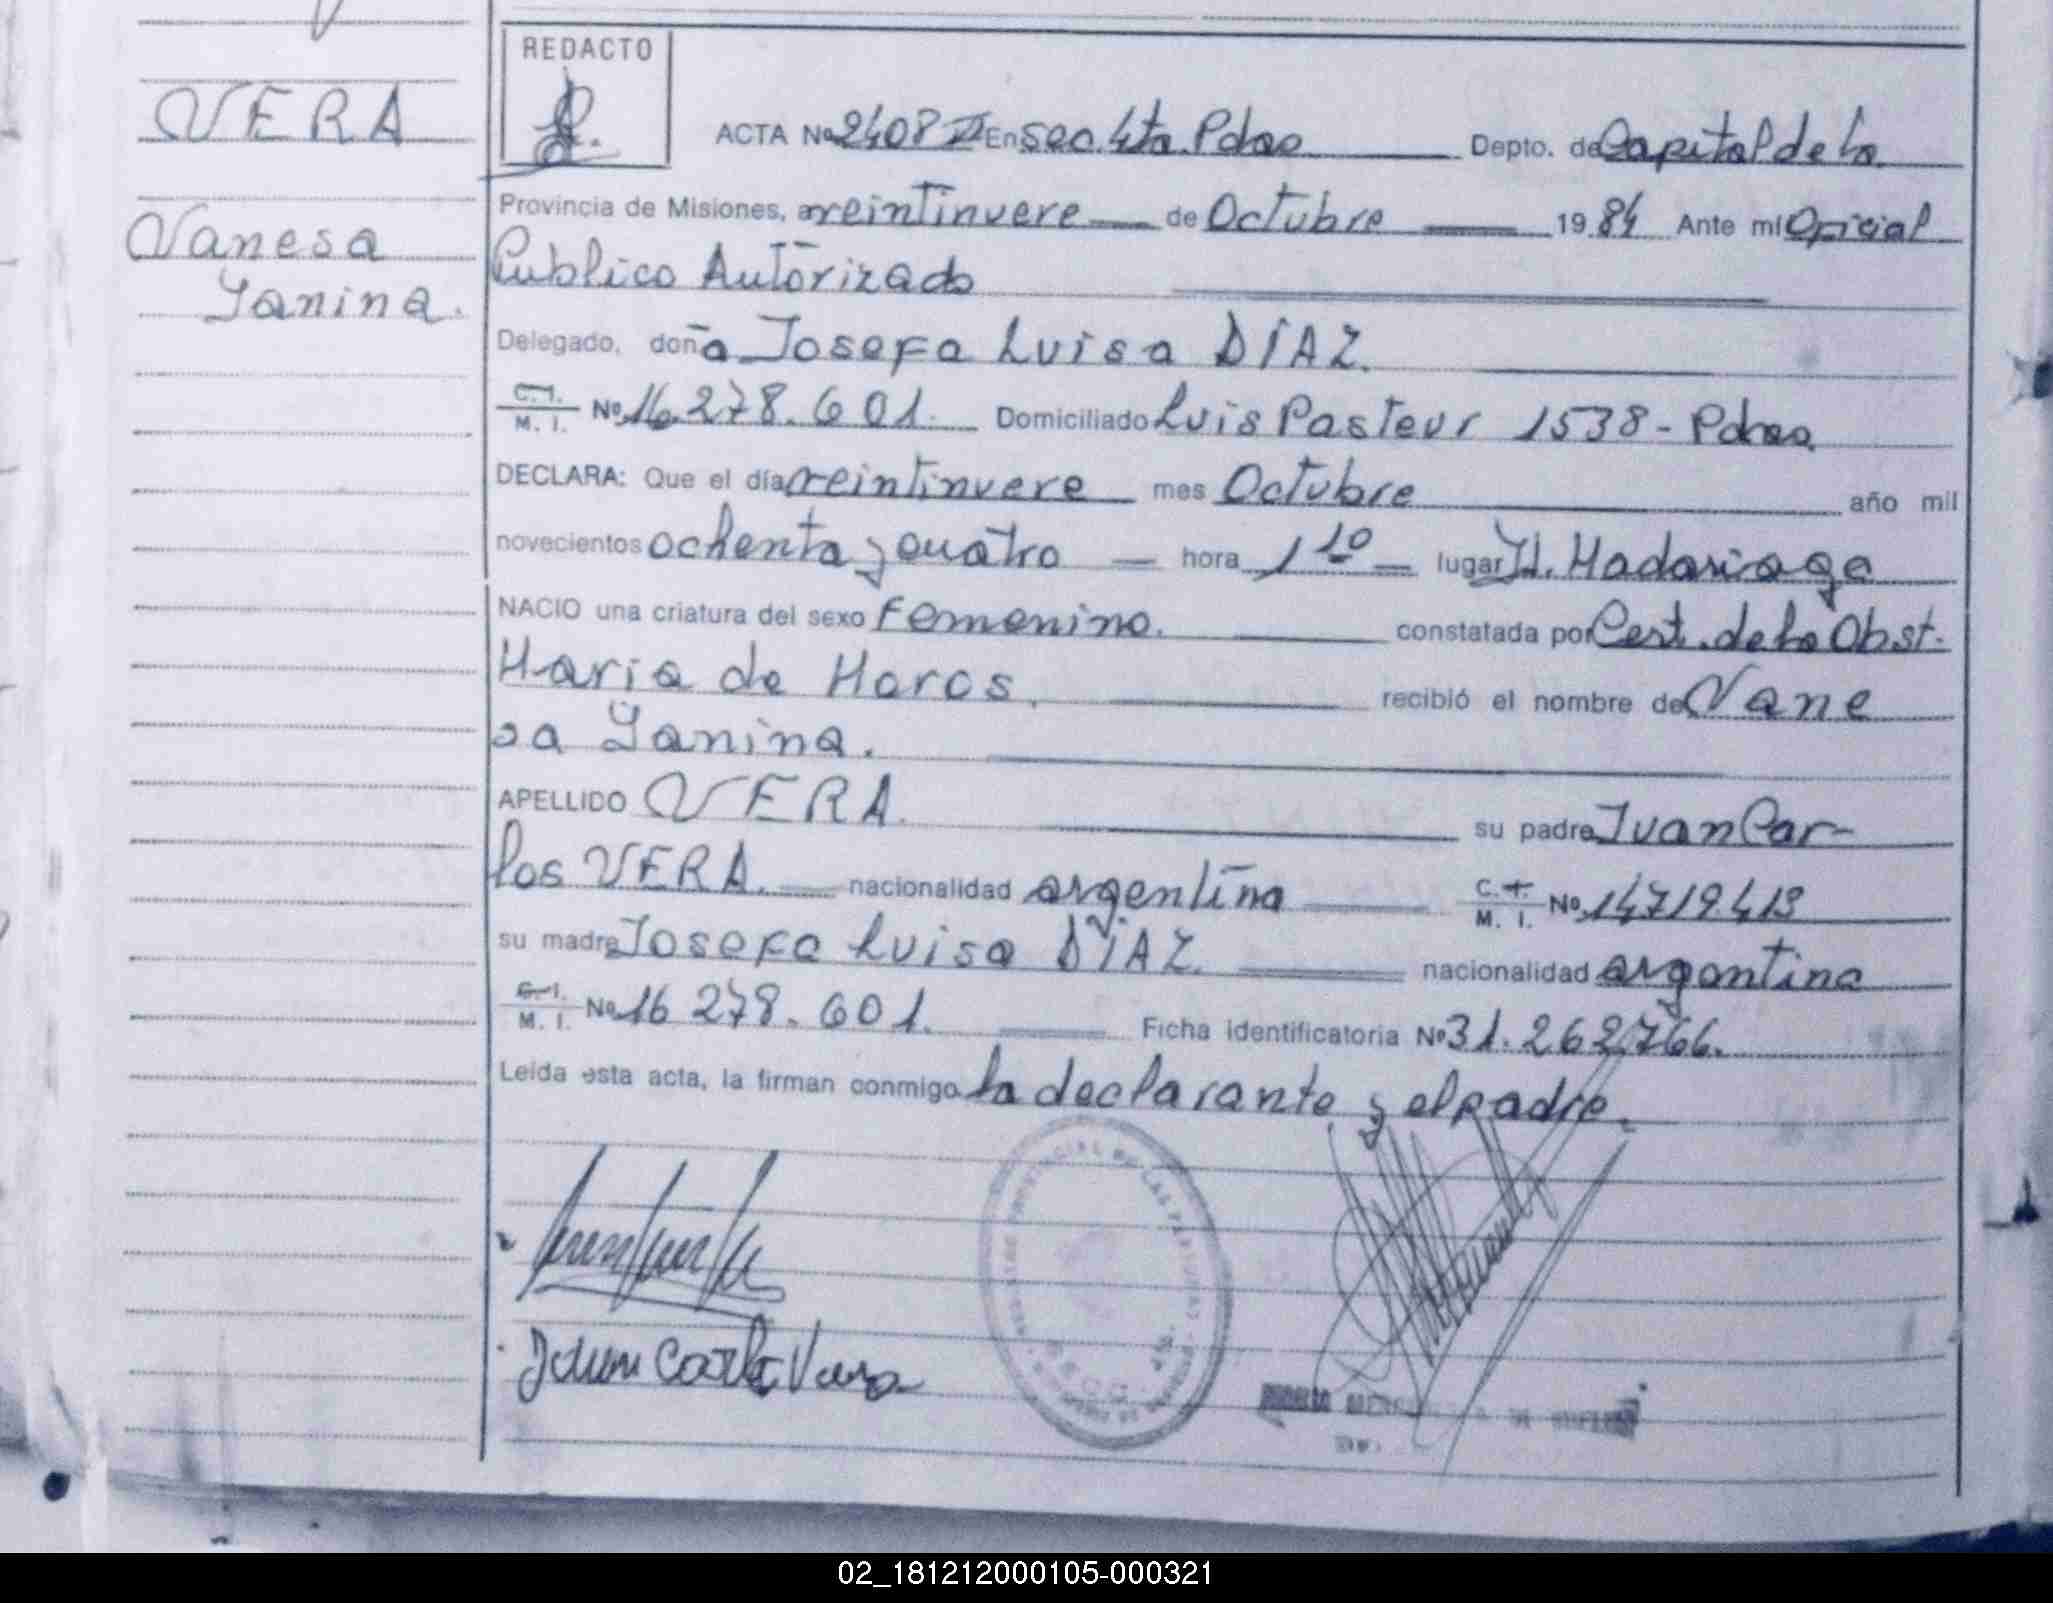 REDACTO
VERA
Vanesa
Yanina.
ACTA Nº 2408 II En Sec. 4ta. Pdas Depto. de Capital de la
Provincia de Misiones, a veintinueve de Octubre 1984 Ante mí Oficial
Publico Autorizado
Delegado, doña Josefa Luisa DÍAZ.
C. I. M. I. Nº 16.278.601. Domiciliado Luis Pasteur 1538 - Pdas
DECLARA: Que el día veintinueve mes Octubre año mil
novecientos ochenta y cuatro hora 1 10 lugar H. Madariaga
NACIO una criatura del sexo Femenino. constatada por Cert. de la Obst.
Maria de Moros. recibió el nombre de Vane
sa Yanina.
APELLIDO VERA. su padre Juan Car-
los VERA. nacionalidad argentina C. I. M. I. Nº 14719413
su madre Josefa Luisa DÍAZ. nacionalidad argentina
C. I. M. I. Nº 16 278.601. Ficha identificatoria Nº 31.262.766.
Leída esta acta, la firman conmigo la declarante y el padre.
Juan Carlos Vera
02_181212000105-000321